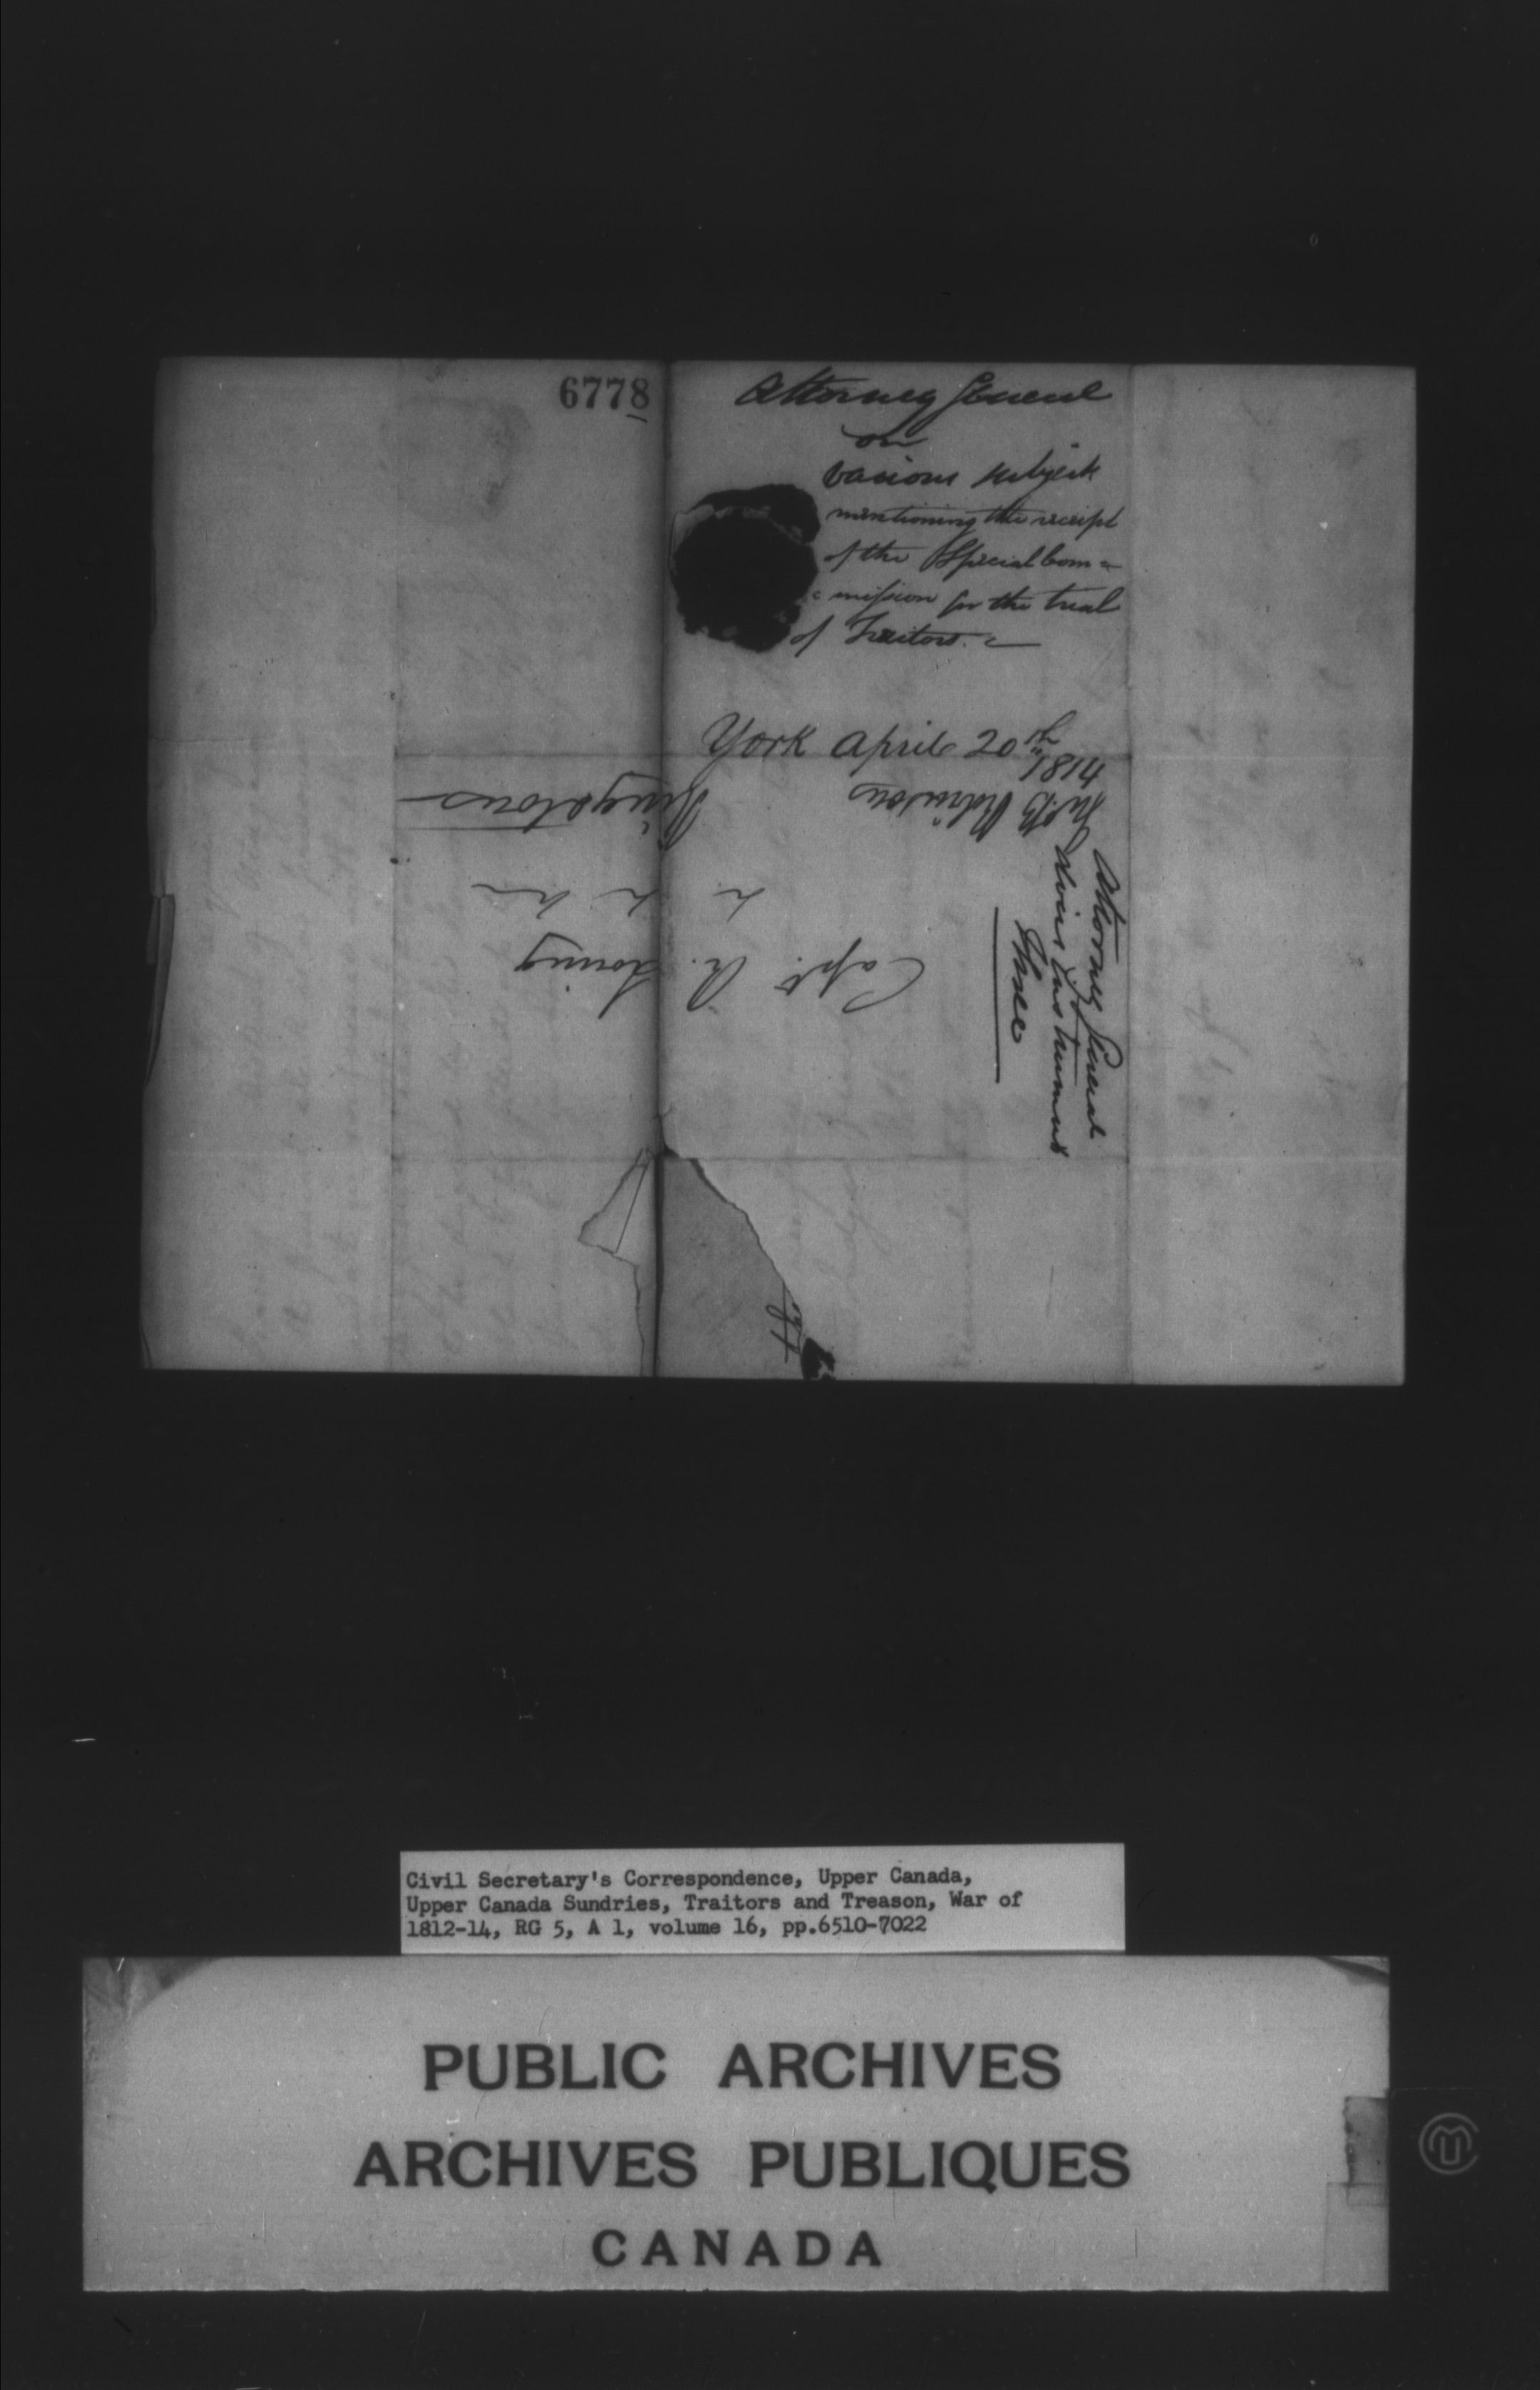 6778
Attorney General
on
various subjects
mentioning the receipt
of the Special Com=
=mission for the trial
of Traitors.
York April 20th
1814
Attorney General
Three
Capt. R. Loring
Kingston
Jno. B Robinson
Civil Secretary's Correspondence, Upper Canada,
Upper Canada Sundries, Traitors and Treason, War of
1812-14, RG 5, A 1, volume 16, pp.6510-7022
PUBLIC ARCHIVES
ARCHIVES PUBLIQUES
CANADA